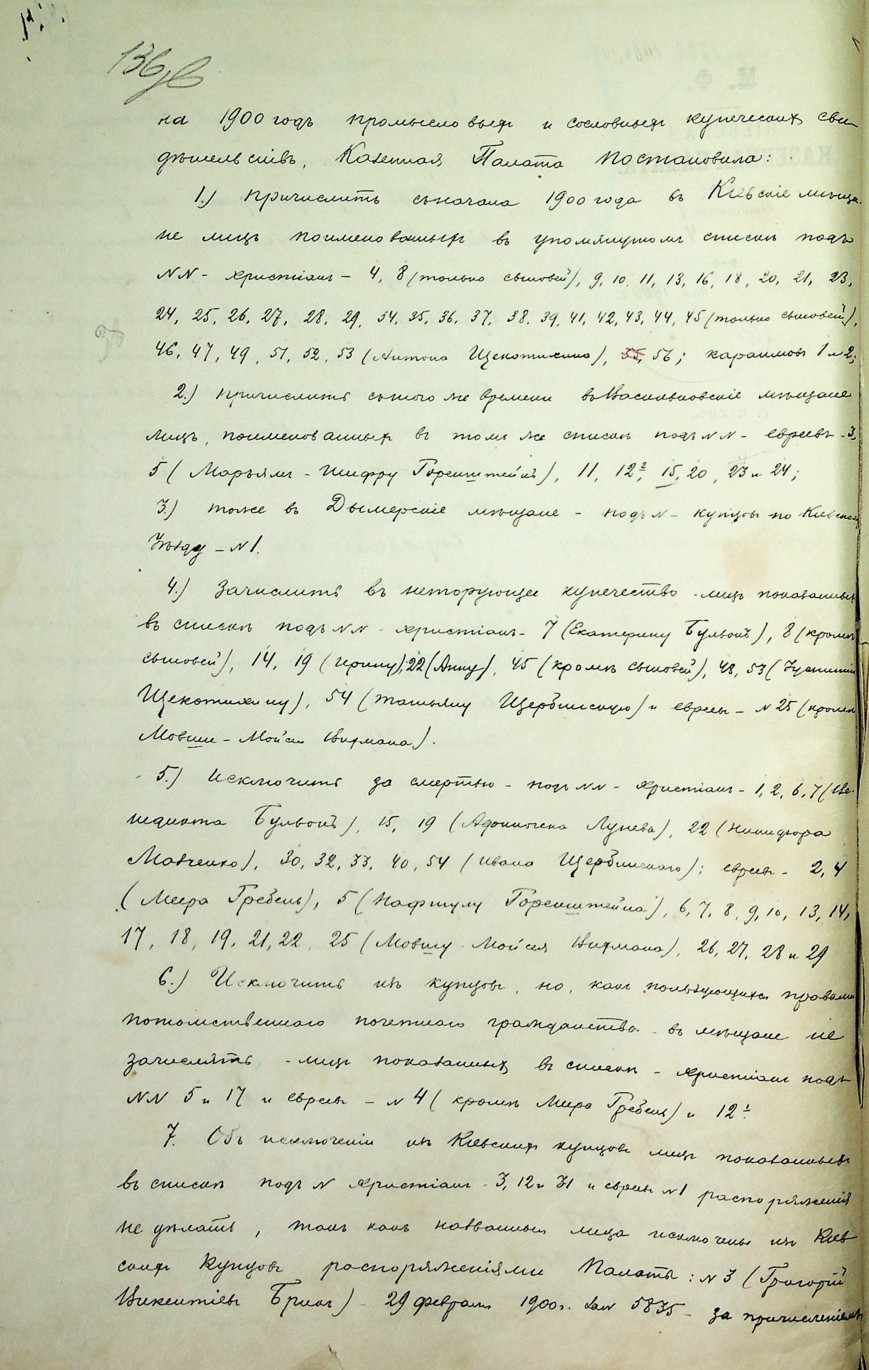 136 об
на 1900 годъ промысловыхъ и сословныхъ купеческихъ сви-
дѣтельствъ, Казенная Палата постановила:
1.) Причислить съ начала 1900 года въ Кіевскіе мѣща-
не лицъ поименованныхъ въ упомянутомъ списке подъ
NN - христіанъ - 4, 8 (только сыновей), 9, 10, 11, 13, 16, 18, 20, 21, 23,
24, 25, 26, 27, 28, 29, 34, 35, 36, 37, 38, 39, 41, 42, 43, 44, 45 (только сыновей),
46, 47, 49, 51, 52, 53 (Антона Щекотихина), 55, 56; караимовъ 1 и 2;
2.) причислить съ того же времени въ Васильковскіе мѣщане
лицъ, поименованныхъ въ томъ же списке подъ NN - евреевъ - 3,
5 (Марьямъ - Шифру Горенштейнъ), 11, 12², 15, 20, 23 и 24;
3.) тоже въ Дымерскіе мѣщане - подъ N - купцовъ по Кіевскому
Уѣзду - N 1.
4.) Зачислить въ неторгующее купечество - лицъ показанныхъ
въ списке подъ NN - христіанъ - 7 (Екатерину Бульонъ), 8 (кроме
сыновей), 14, 19 (Ирину), 22 (Анну), 45 (кроме сыновей), 48, 53 (Устинію
Щекотихину), 54 (Татьяну Щербинскую) и евреевъ - N 25 (кроме
Мовши - Мойсея Вирмана).
5.) Исключить за смертью - подъ NN - христіанъ - 1, 2, 6, 7 (Ве-
недикта Бульонъ), 15, 19 (Афиногена Лунева), 22 (Никифора
Мавченко), 30, 32, 33, 40, 54 (Ивана Щербинскаго); евреевъ - 2, 4
(Меера Гребень), 5 (Нафтулу Горенштейна), 6, 7, 8, 9, 10, 13, 14,
17, 18, 19, 21, 22, 25 (Мовшу Мойсея Вирмана), 26, 27, 28 и 29
6.) Исключить изъ купцовъ, но, какъ пользующихся правами
потомственнаго почетнаго гражданства - въ мѣщане не
зачислять - лицъ показанныхъ въ списке - христіанъ подъ
NN 5 и 17 и евреевъ - N 4 (кроме Меера Гребень) и 12¹
7. Объ исключеніи изъ Кіевскихъ купцовъ лицъ показанныхъ
въ списке подъ N христіанъ - 3, 12 и 31 и евреевъ N 1 распоряженія
не дѣлать, такъ какъ названныя лица исключены изъ Кіев
скихъ Купцовъ распоряженіями Палаты: N 3 (Григорій
Викентіевъ Бриль) - 29 февраля 1900 г. за N 5835 - за причисленіемъ